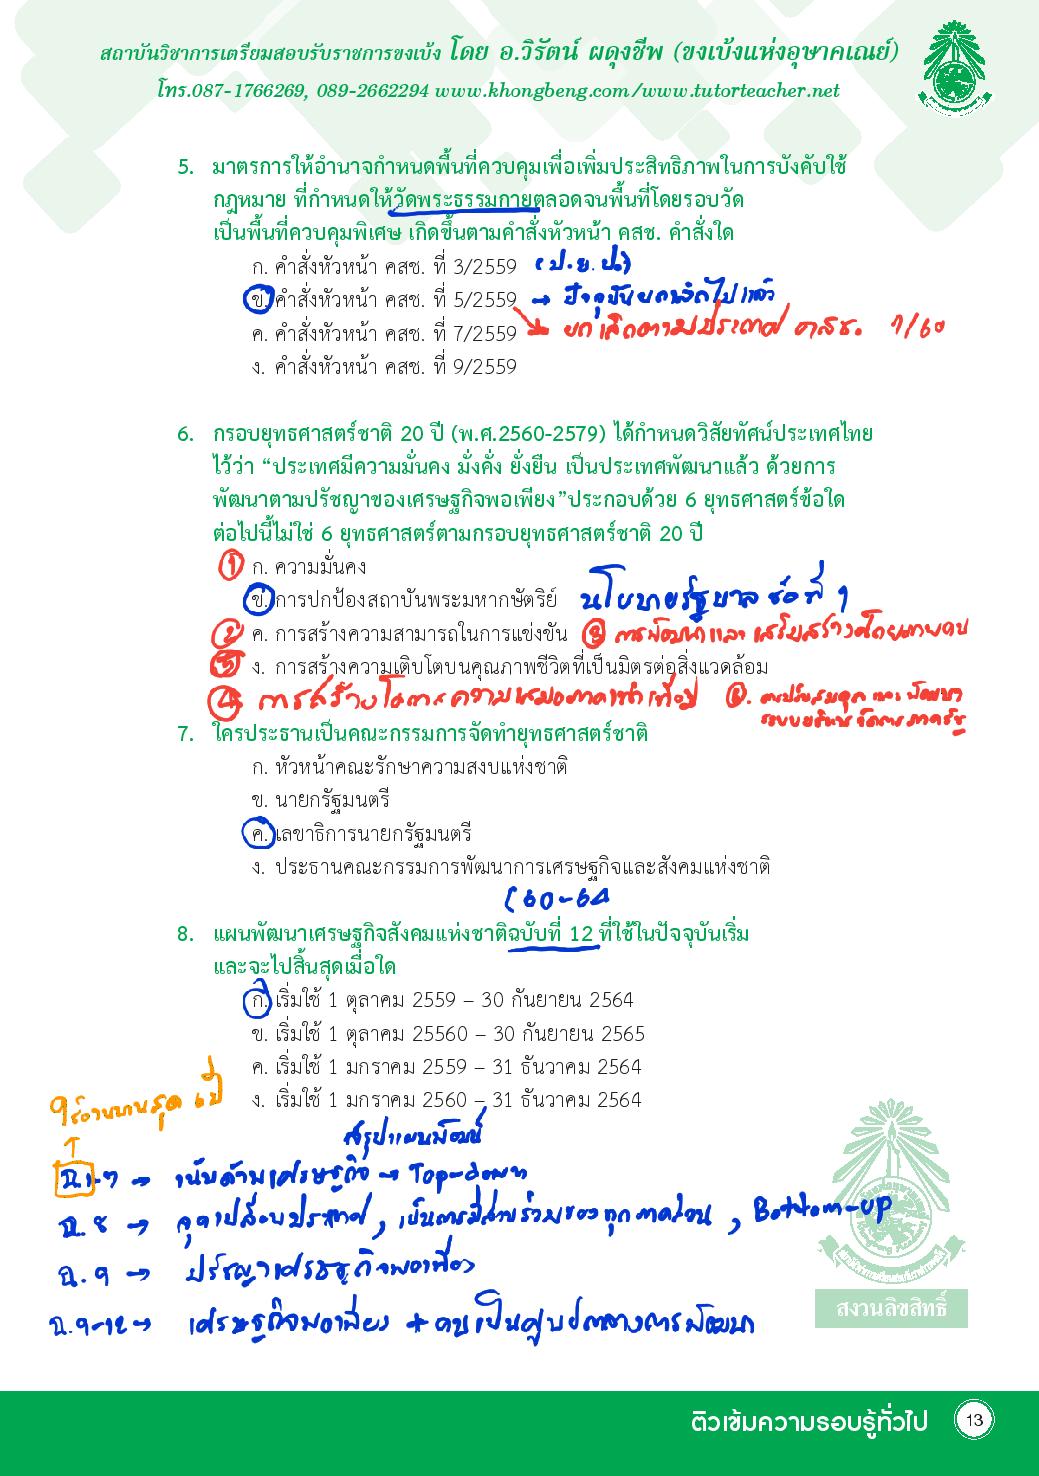 สถาบันวิชาการเตรียมสอบรับราชการขงเบ้ง โดย อ.วิรัตน์ ผดุงชีพ (ขงเบ้งแห่งอุษาคเณย์)
โทร.087-1766269, 089-2662294 www.khongbeng.com/www.tutorteacher.net
5. มาตรการให้อำนาจกำหนดพื้นที่ควบคุมเพื่อเพิ่มประสิทธิภาพในการบังคับใช้
กฎหมาย ที่กำหนดให้วัดพระธรรมกายตลอดจนพื้นที่โดยรอบวัด
เป็นพื้นที่ควบคุมพิเศษ เกิดขึ้นตามคำสั่งหัวหน้า คสช. คำสั่งใด
ก. คำสั่งหัวหน้า คสช. ที่ 3/2559 (ป.ย.ป.)
ข. คำสั่งหัวหน้า คสช. ที่ 5/2559 → ปัจจุบันยกเลิกไปแล้ว
→ ยกเลิกตามประกาศ คสช. 9/60
ค. คำสั่งหัวหน้า คสช. ที่ 7/2559
ง. คำสั่งหัวหน้า คสช. ที่ 9/2559
6. กรอบยุทธศาสตร์ชาติ 20 ปี (พ.ศ.2560-2579) ได้กำหนดวิสัยทัศน์ประเทศไทย
ไว้ว่า “ประเทศมีความมั่นคง มั่งคั่ง ยั่งยืน เป็นประเทศพัฒนาแล้ว ด้วยการ
พัฒนาตามปรัชญาของเศรษฐกิจพอเพียง”ประกอบด้วย 6 ยุทธศาสตร์ข้อใด
ต่อไปนี้ไม่ใช่ 6 ยุทธศาสตร์ตามกรอบยุทธศาสตร์ชาติ 20 ปี
① ก. ความมั่นคง
ข. การปกป้องสถาบันพระมหากษัตริย์ นโยบายรัฐบาล ข้อที่ 1
② ค. การสร้างความสามารถในการแข่งขัน ③ การพัฒนาและเสริมสร้างศักยภาพคน
ง. การสร้างความเติบโตบนคุณภาพชีวิตที่เป็นมิตรต่อสิ่งแวดล้อม
④ การสร้างโอกาสความเสมอภาคเท่าเทียม ๖. การปรับสมดุล และ พัฒนา
ระบบบริหารจัดการภาครัฐ
7. ใครประธานเป็นคณะกรรมการจัดทำยุทธศาสตร์ชาติ
ก. หัวหน้าคณะรักษาความสงบแห่งชาติ
ข. นายกรัฐมนตรี
ค. เลขาธิการนายกรัฐมนตรี
ง. ประธานคณะกรรมการพัฒนาการเศรษฐกิจและสังคมแห่งชาติ
(60-64
8. แผนพัฒนาเศรษฐกิจสังคมแห่งชาติฉบับที่ 12 ที่ใช้ในปัจจุบันเริ่ม
และจะไปสิ้นสุดเมื่อใด
ก. เริ่มใช้ 1 ตุลาคม 2559 – 30 กันยายน 2564
ข. เริ่มใช้ 1 ตุลาคม 25560 – 30 กันยายน 2565
ค. เริ่มใช้ 1 มกราคม 2559 – 31 ธันวาคม 2564
ง. เริ่มใช้ 1 มกราคม 2560 – 31 ธันวาคม 2564
ใช้งานนานสุด 6 ปี
สรุปแผนพัฒน์
ฉ.1-7 → เน้นด้านเศรษฐกิจ → Top-down
ฉ. 8 → จุดเปลี่ยนประเทศ, เป็นการมีส่วนร่วมของทุกภาคส่วน, Bottom-up
ฉ. 9 → ปรัชญาเศรษฐกิจพอเพียง
ฉ. 9-12 → เศรษฐกิจพอเพียง + คนเป็นศูนย์กลางการพัฒนา
สงวนลิขสิทธิ์
ติวเข้มความรอบรู้ทั่วไป 13